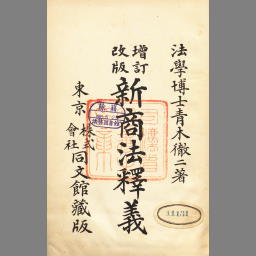 法學博士青木徹二著
增訂
改版
新商法釋義
東京
株式
會社
同文館藏版